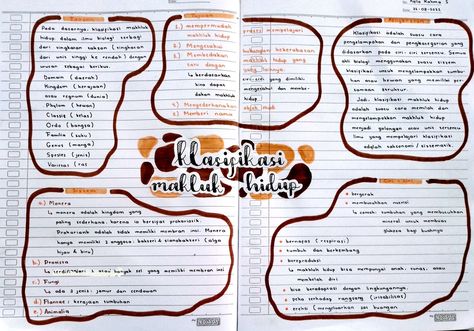 Aulia Rahma S
22-08-2022
Takson
Pada dasarnya, klasifikasi makhluk
hidup dalam ilmu biologi terbagi
dari tingkatan takson (tingkatan
dari unit tinggi ke rendah) dengan
urutan sebagai berikut.
Domain (daerah)
Kingdom (kerajaan)
atau regnum (dunia)
Phylum (hewan)
Classis (kelas)
Ordo (bangsa)
Familia (suku)
Genus (marga)
Spesies (jenis)
Varietas (ras
Tujuan
1.) mempermudah mempelajari
makhluk hidup
2.) Mengetahui hubungan kekerabatan
3.) Membedakan makhluk
satu dengan
↳ berdasarkan ciri-ciri yang dimiliki
bisa dapat mengetahui dan membe-
dakan makhluk hidup
4.) Menyederhanakan objek studi
5.) Memberi nama
Pengertian
Klasifikasi adalah suatu cara
pengelompokan dan pengkategorian yang
didasarkan pada ciri-ciri tertentu. Semua
ahli biologi menggunakan suatu sistem
klasifikasi untuk mengelompokkan tumbuh-
an atau hewan yang memiliki per-
samaan struktur.
Jadi, klasifikasi makhluk hidup
adalah suatu cara memilah dan
mengelompokkan makhluk hidup
menjadi golongan atau unit tertentu
ilmu yang mempelajari klasifikasi
adalah taksonomi / sistematik.
klasifikasi
makluk hidup
Sistem
a.) Monera
↳ monera adalah kingdom yang
paling sederhana, karena ia bersifat prokariotik.
Prokariotik adalah tidak memiliki membran inti. Monera
hanya memiliki 2 anggota : bakteri & sianobakteri (alga
hijau & biru)
b.) Protista
↳ terdiri dari 1 atau banyak sel yang memiliki membran inti
c.) Fungi
↳ ada 2 jenis : jamur dan cendawan
d.) Plantae : kerajaan tumbuhan
e.) Animalia
bergerak
membutuhkan nutrisi
↳ contoh : tumbuhan yang membutuhkan
mineral untuk membuat
glukosa bagi tubuhnya
bernapas (respirasi)
tumbuh dan berkembang
bereproduksi
↳ makhluk hidup bisa mempunyai anak, tunas, atau
membelah diri
bisa beradaptasi dengan lingkungannya.
peka terhadap rangsang (iritabilitas)
ekskresi (mengeluarkan zat buangan